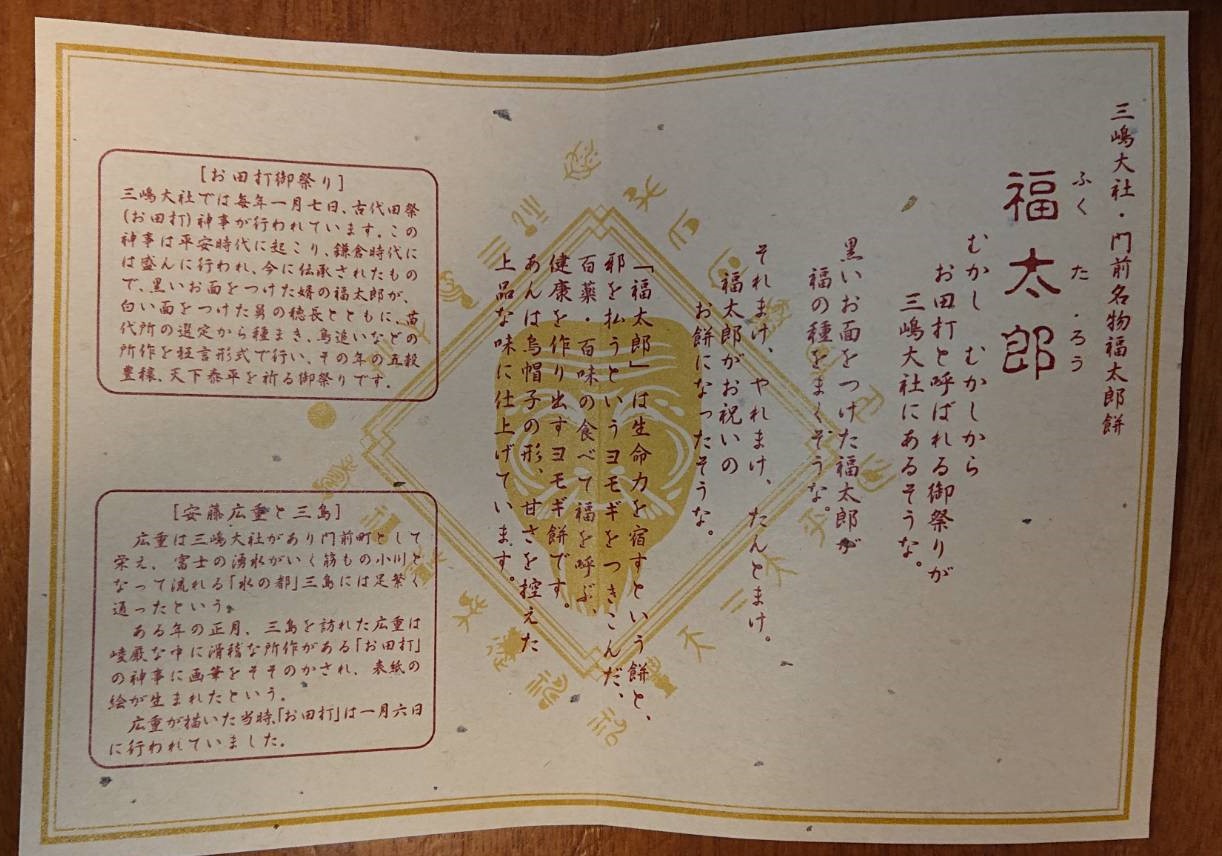 三嶋大社・門前名物福太郎餅
ふく た ろう
福太郎
むかし むかしから
お田打と呼ばれる御祭りが
三嶋大社にあるそうな。
黒いお面をつけた福太郎が
福の種をまくそうな。
それまけ、やれまけ、たんとまけ。
福太郎がお祝いの
お餅になったそうな。
「福太郎」は生命力を宿すという餅と、
邪を払うというヨモギをつきこんだ、
百薬・百味の食べて福を呼ぶ、
健康を作り出すヨモギ餅です。
あんは烏帽子の形、甘さを控えた
上品な味に仕上げています。
[お田打御祭り]
三嶋大社では毎年一月七日、古代田祭
(お田打)神事が行われています。この
神事は平安時代に起こり、鎌倉時代に
は盛んに行われ、今に伝承されたもの
で、黒いお面をつけた婿の福太郎が、
白い面をつけた舅の穂長とともに、苗
代所の選定から種まき、鳥追いなどの
所作を狂言形式で行い、その年の五穀
豊穣、天下泰平を祈る御祭りです。
[安藤広重と三島]
広重は三嶋大社があり門前町として
栄え、富士の湧水がいく筋もの小川と
なって流れる「水の都」三島には足繁く
通ったという。
ある年の正月、三島を訪れた広重は
崚厳な中に滑稽な所作がある「お田打」
の神事に画筆をそそのかされ、表紙の
絵が生まれたという。
広重が描いた当時、「お田打」は一月六日
に行われていました。